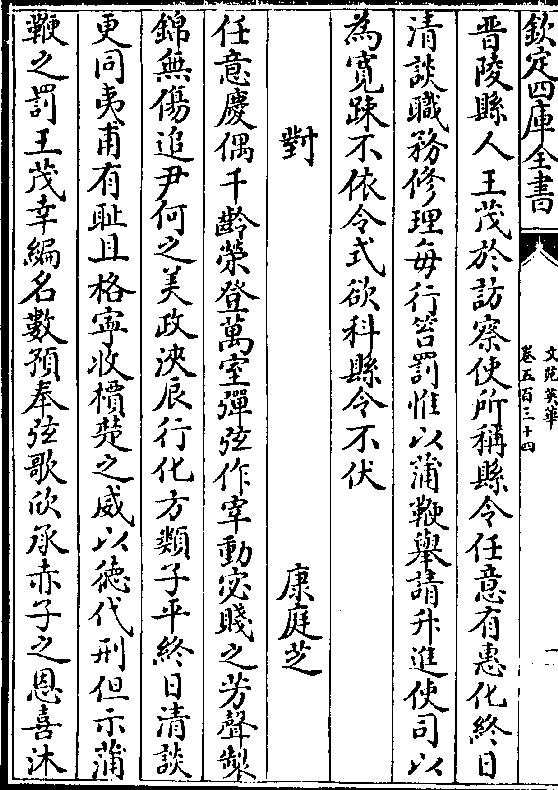 欽定四庫全書
文苑英華
卷五百三十四
晋陵縣人王茂於訪察使所稱縣令任意有惠化終日
清談職務修理每行笞罰惟以蒲鞭舉請升進使司以
為寛踈不依令式欲科縣令不伏
對
康庭芝
任意慶偶千齡榮登萬室彈弦作宰動宓賤之芳聲製
錦無傷追尹何之美政浹辰行化方類子平終日清談
更同夷甫有耻且格寧收檟楚之威以徳代刑但示蒲
鞭之罰王茂幸編名數預奉弦歌欣承赤子之恩喜沐